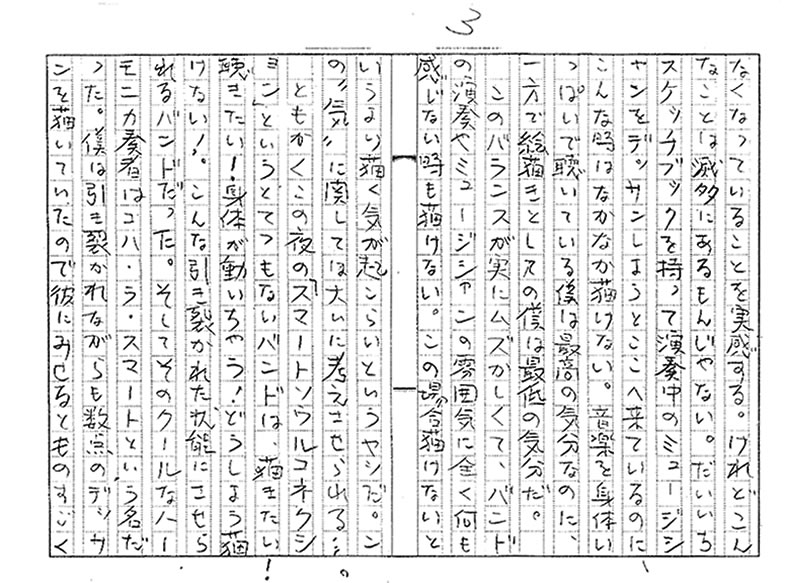 3
なくなっていることを実感する。けれどこん
なことは滅多にあるもんじゃない。だいいち
スケッチブックを持って演奏中のミュージシ
ャンをデッサンしようとここへ来ているのに、
こんな時はなかなか描けない。音楽を身体い
っぱいで聴いている僕は最高の気分なのに、
一方で絵描きとしての僕は最低の気分だ。
このバランスが実にムズかしくて、バンド
の演奏やミュージシャンの雰囲気に全く何も
感じない時も描けない。この場合描けないと
いうより描く気が起こらいというヤツだ。ン
の〝気〟に関しては大いに考えさせられる…。
ともかくこの夜の「スマートソウルコネクシ
ョン」というとてつもないバンドは、描きたい!
聴きたい!身体が動いちゃう!どうしよう描
けない!。こんな引き裂かれた状態にさせら
れるバンドだった。そしてそのクールなハー
モニカ奏者はコハ・ラ・スマートという名だ
った。僕は引き裂かれながらも数点のデッサ
ンを描いていたので彼にみせるとものすごく